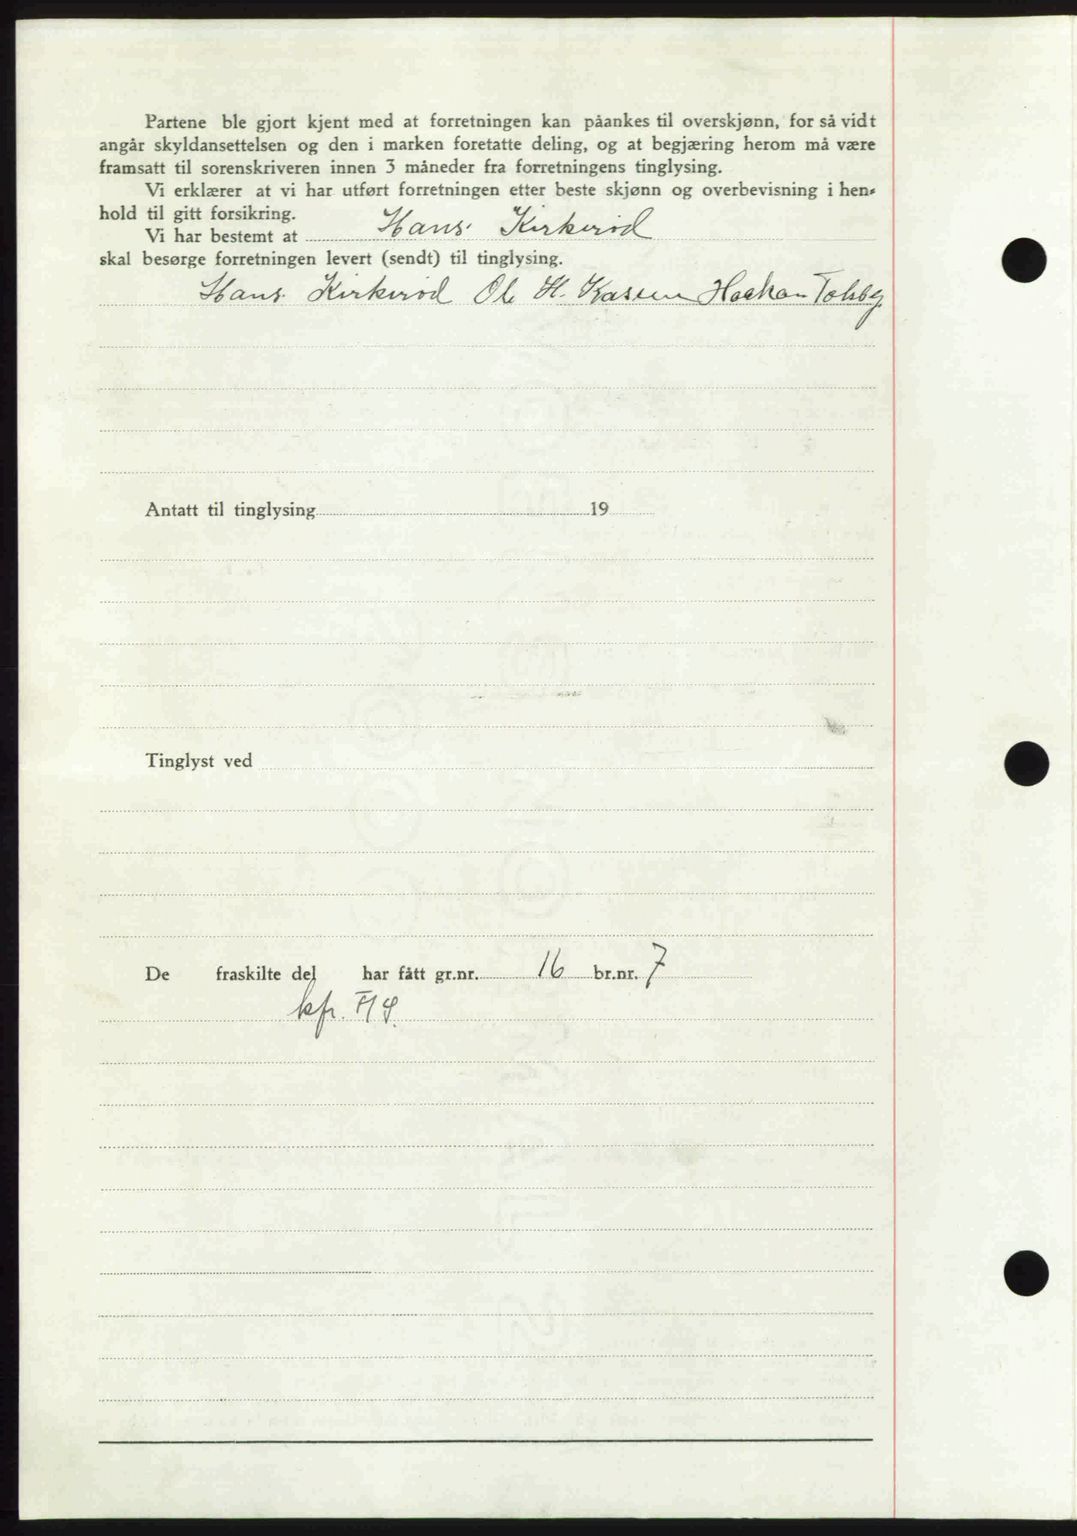 Partene ble gjort kjent med at forretningen kan påankes til overskjønn, for så vidt
angår skyldansettelsen og den i marken foretatte deling, og at begjæring herom må være
framsatt til sorenskriveren innen 3 måneder fra forretningens tinglysing.
Vi erklærer at vi har utført forretningen etter beste skjønn og overbevisning i hen-
hold til gitt forsikring.
Vi har bestemt at Hans Kirkerød
skal besørge forretningen levert (sendt) til tinglysing.
Hans Kirkerød Ole H. Haakon
Antatt til tinglysing 19
Tinglyst ved
De fraskilte del har fått gr.nr. 16 br.nr. 7
kfr.